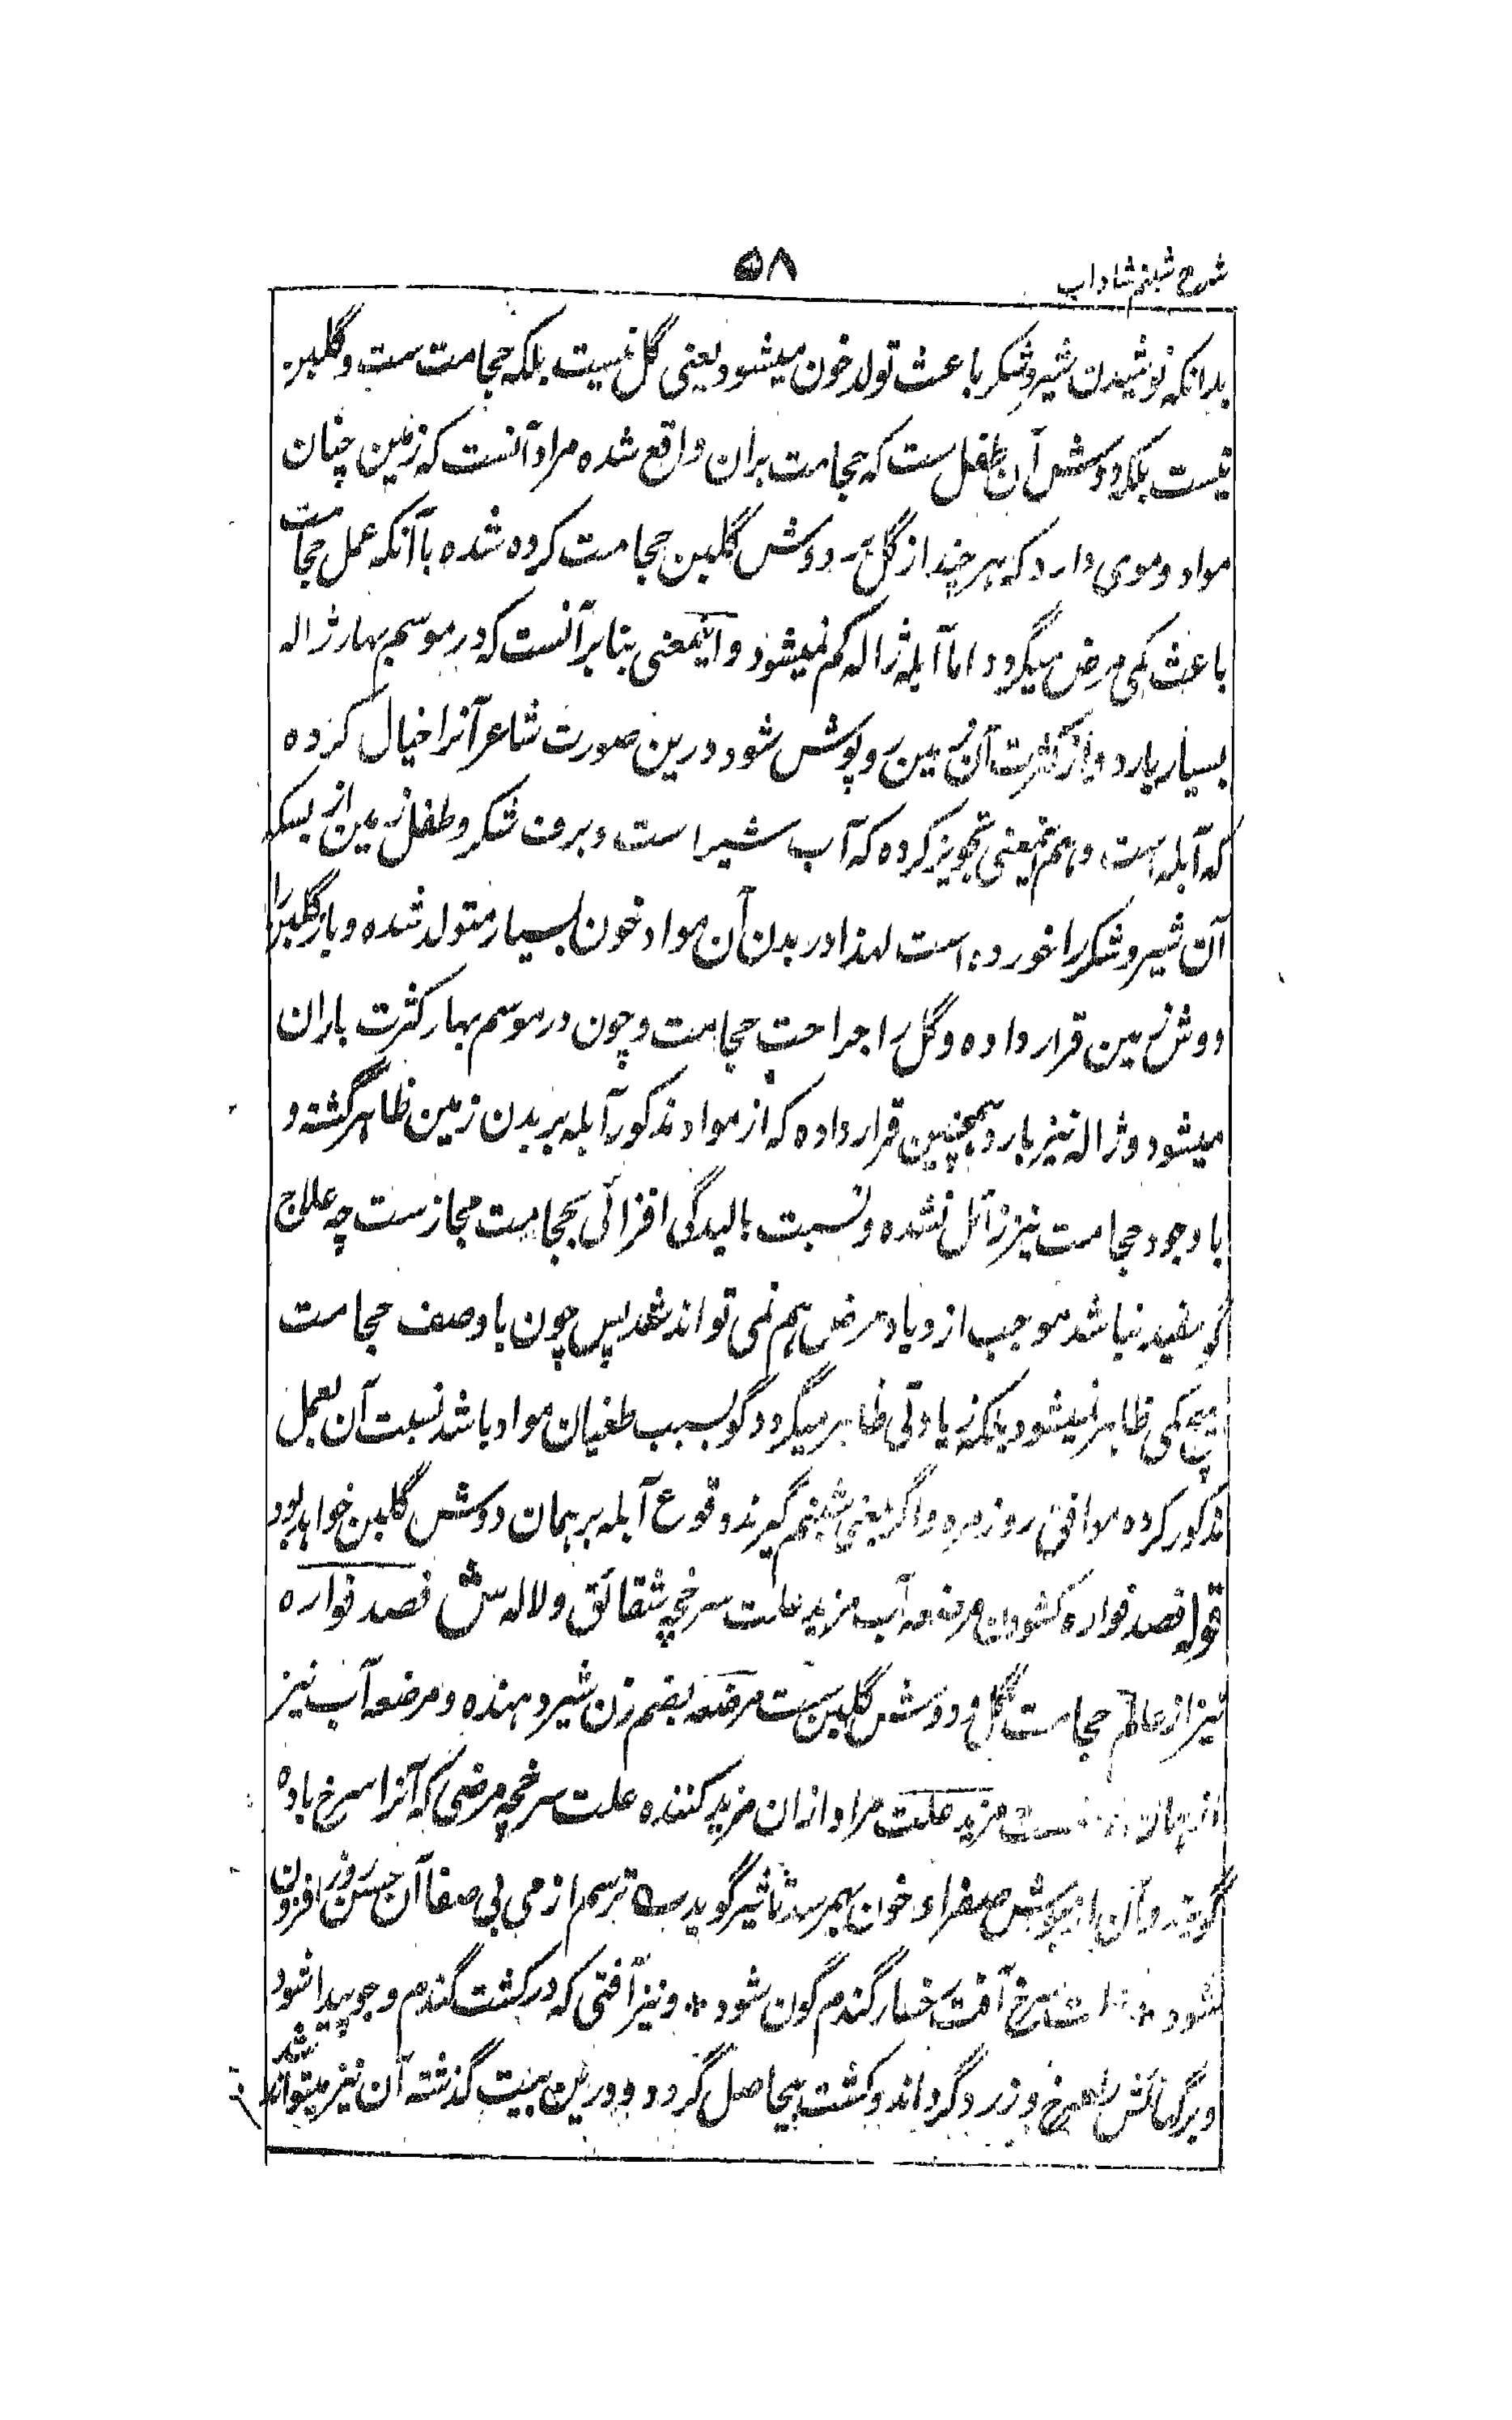 شرح شبنم شاداب
۵۸
بدانکه نوشیدن شیر و شکر باعث تولد خون میشود یعنی گل نیست بلکه حجامت ست و گلبن
نیست بلکه دوش آن طفل ست که حجامت بران واقع شده مراد آنست که زمین چنان
مواد دموی دارد که هر چند از گل بر دوش گلبن حجامت کرده شده با آنکه عمل حجامت
باعث کمی مرض میگردد اما آبله ژاله کم نمیشود و اینمعنی بنابر آنست که در موسم بهار ژاله
بسیار بارد و از کثرت آن زمین روپوش شود درین صورت شاعر آنرا خیال کرده
که آبله است و هم اینمعنی تجویز کرده که آب شیر است و برف شکر و طفل زمین از بسکه
آن شیر و شکر را خورده است لهذا در بدن آن مواد خون بسیار متولد شده و باز گلبن را
دوش زمین قرار داده و گل را جراحت حجامت و چون در موسم بهار کثرت باران
میشود و ژاله نیز بارد همچنین قرار داده که از مواد مذکور آبله بر بدن زمین ظاهر گشته و
با وجود حجامت نیز زائل نشده و نسبت بالیدگی افزائی بحجامت مجاز ست چه علاج
گو مفید نباشد موجب ازدیاد مرض هم نمی تواند شد پس چون با وصف حجامت
هیچ کمی ظاهر نمیشود بلکه زیادتی ظاهر میگردد گو بسبب طغیان مواد باشد نسبت آن بعمل
مذکور کرده موافق روزمره و اگر بمعنی شبنم گیرند وقوع آبله بر همان دوش گلبن خواهد بود
قوله فصد فواره کشودن مرضعه آب مزید علت سرخچه شقائق و لاله ش فصد فواره
نیز از عالم حجامت گل و دوش گلبن ست مرضعه بضم زن شیر دهنده و مرضعه آب نیز
مزید علت مراد ازان مزید کننده علت سرخچه مرضی که آنرا سرخ باده
گویند و آن از جوش صفرا و خون بهمرسد تاثیر گوید ترسم از می بی صفا آن حسن روز افزون
شود سرخ آفت رخسار گندم گون شود * و نیز آفتی که در کشت گندم و جو پیدا شود
و برگهائش را سرخ و زرد گرداند و کشت بیحاصل گردد و درین بیت گذشته آن نیز میتواند شد